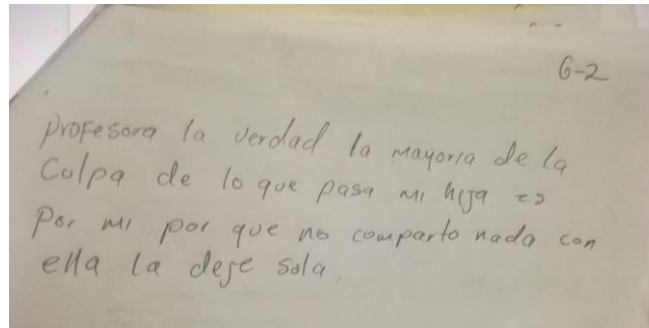 6-2
profesora la verdad la mayoria de la
Culpa de lo que pasa mi hija es
Por mi por que no comparto nada con
ella la deje sola.